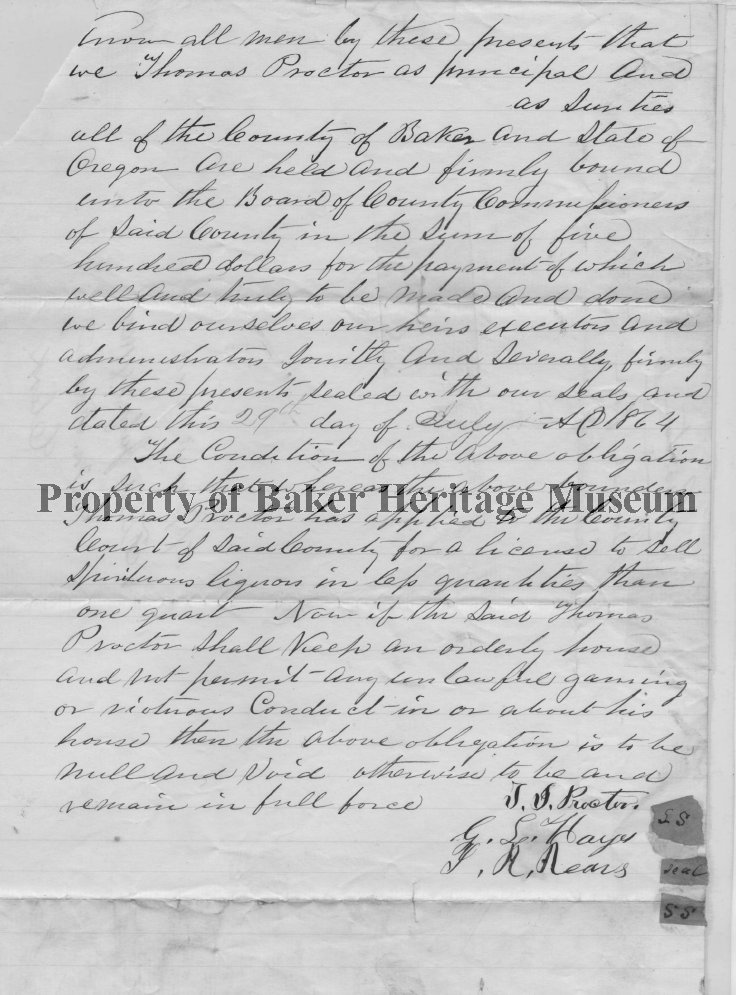 Know all men by these presents that
we Thomas Proctor as principal And
as Sureties
all of the County of Baker And State of
Oregon Are held And firmly bound
unto the Board of County Commissioners
of Said County in the Sum of five
hundred dollars for the payment of which
well And truly to be Made And done
we bind ourselves our heirs executors and
administrators Jointly And Severally, firmly
by these presents sealed with our seals, and
dated this 29th day of July AD 1864
The Condition of the above obligation
is such that whereas the above bounden
Property of Baker Heritage Museum
Thomas Proctor has applied to the County
Court of Said County for a license to Sell
Spirituous liquors in less quantities than
one quart Now if the Said Thomas
Proctor Shall Keep an orderly house
and not permit any unlawful gaming
or riotuous Conduct in or about his
house then the above obligation is to be
Null And Void otherwise to be and
remain in full force
T. J. Proctor.
G. L. Hays
T. R. Rears
seal
SS